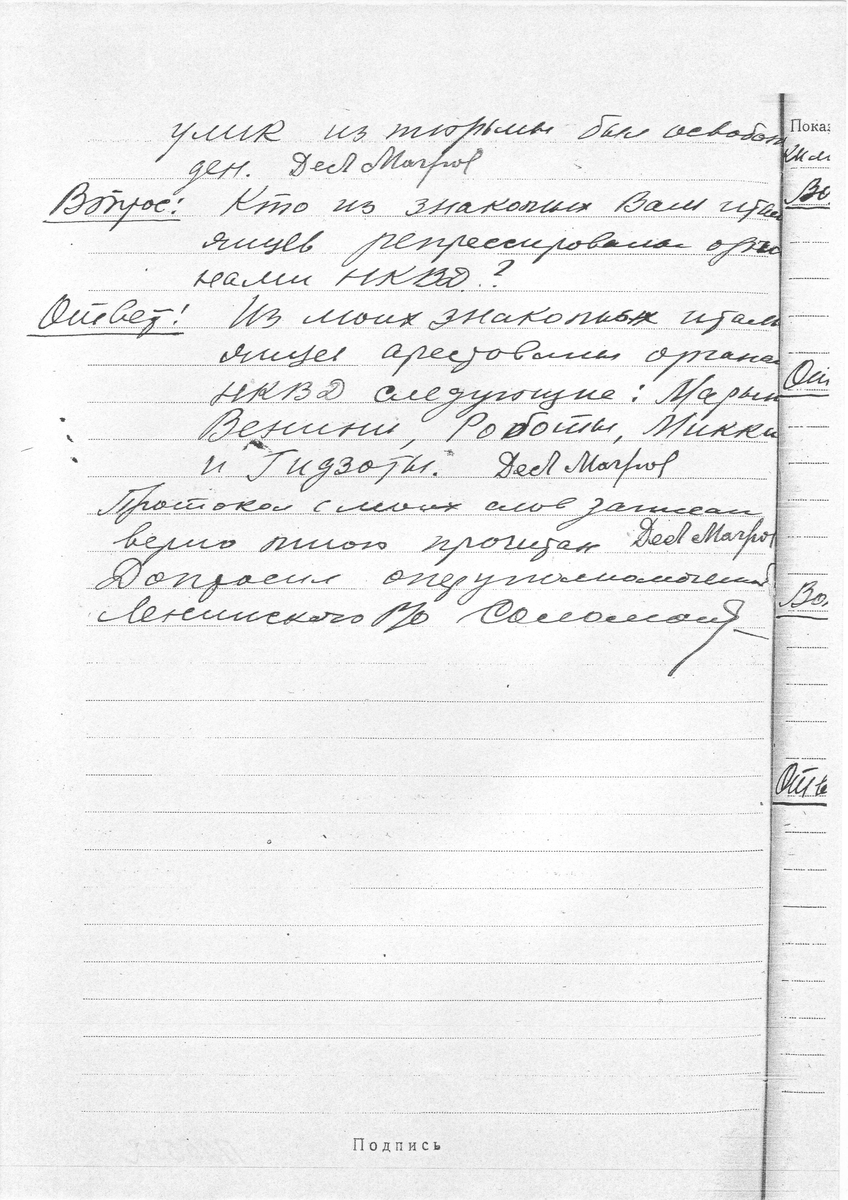 улик из тюрьмы был освобож
ден. Del Magro
Вопрос: Кто из знакомых Вам итал
янцев репрессированы орга
нами НКВД?
Ответ: Из моих знакомых итал
янцев арестованы органа
НКВД следующие: Марын
Венини, Роботы, Микки
и Гидзоты. Del Magro
Протокол с моих слов записан
верно мною прочитан Del Magro
Допросил оперуполномоченный
Ленинского РО
Подпись
Показ
Во
От
Во
Отв